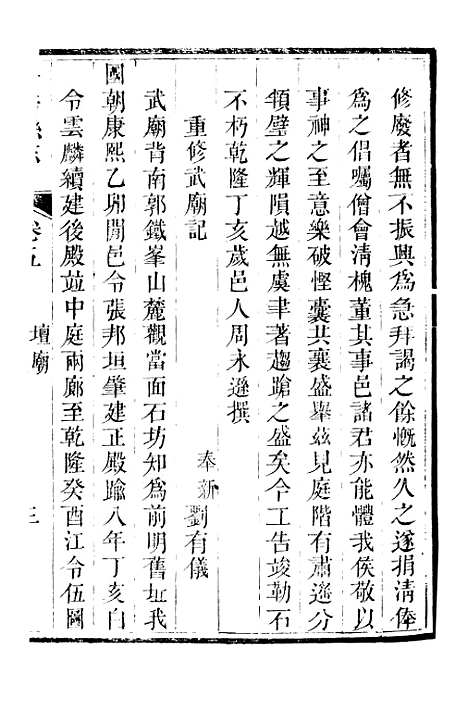 修廢者無不振興爲急拜謁之餘慨然久之遂捐清俸
爲之倡囑僧會清槐董其事邑諸君亦能體我侯敬以
事神之至意樂破慳囊共襄盛舉茲見庭階有肅遜分
頖璧之輝隕越無虞聿著趨蹌之盛矣今工告竣勒石
不朽乾隆丁亥歲邑人周永遜撰
重修武廟記 奉新劉有儀
武廟背南郭鐵峯山麓觀當面石坊知爲前明舊址我
國朝康熙乙夘閒邑令張邦垣肇建正殿踰八年丁亥白
令雲麟續建後殿竝中庭兩廊至乾隆癸酉江令伍圖
卷五 壇廟 三